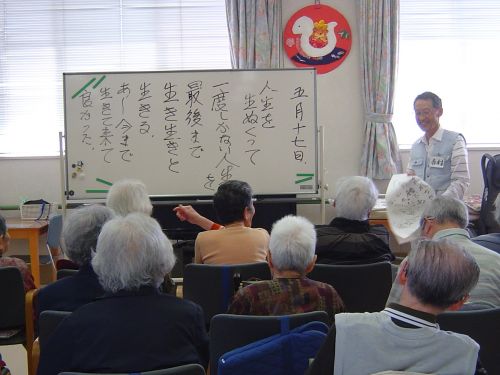 五月十七日
人生を
生ぬくって
一度しかない人生を
最後まで
生き生きと
生きる.
あ〜今まで
生きて来て
良かった.